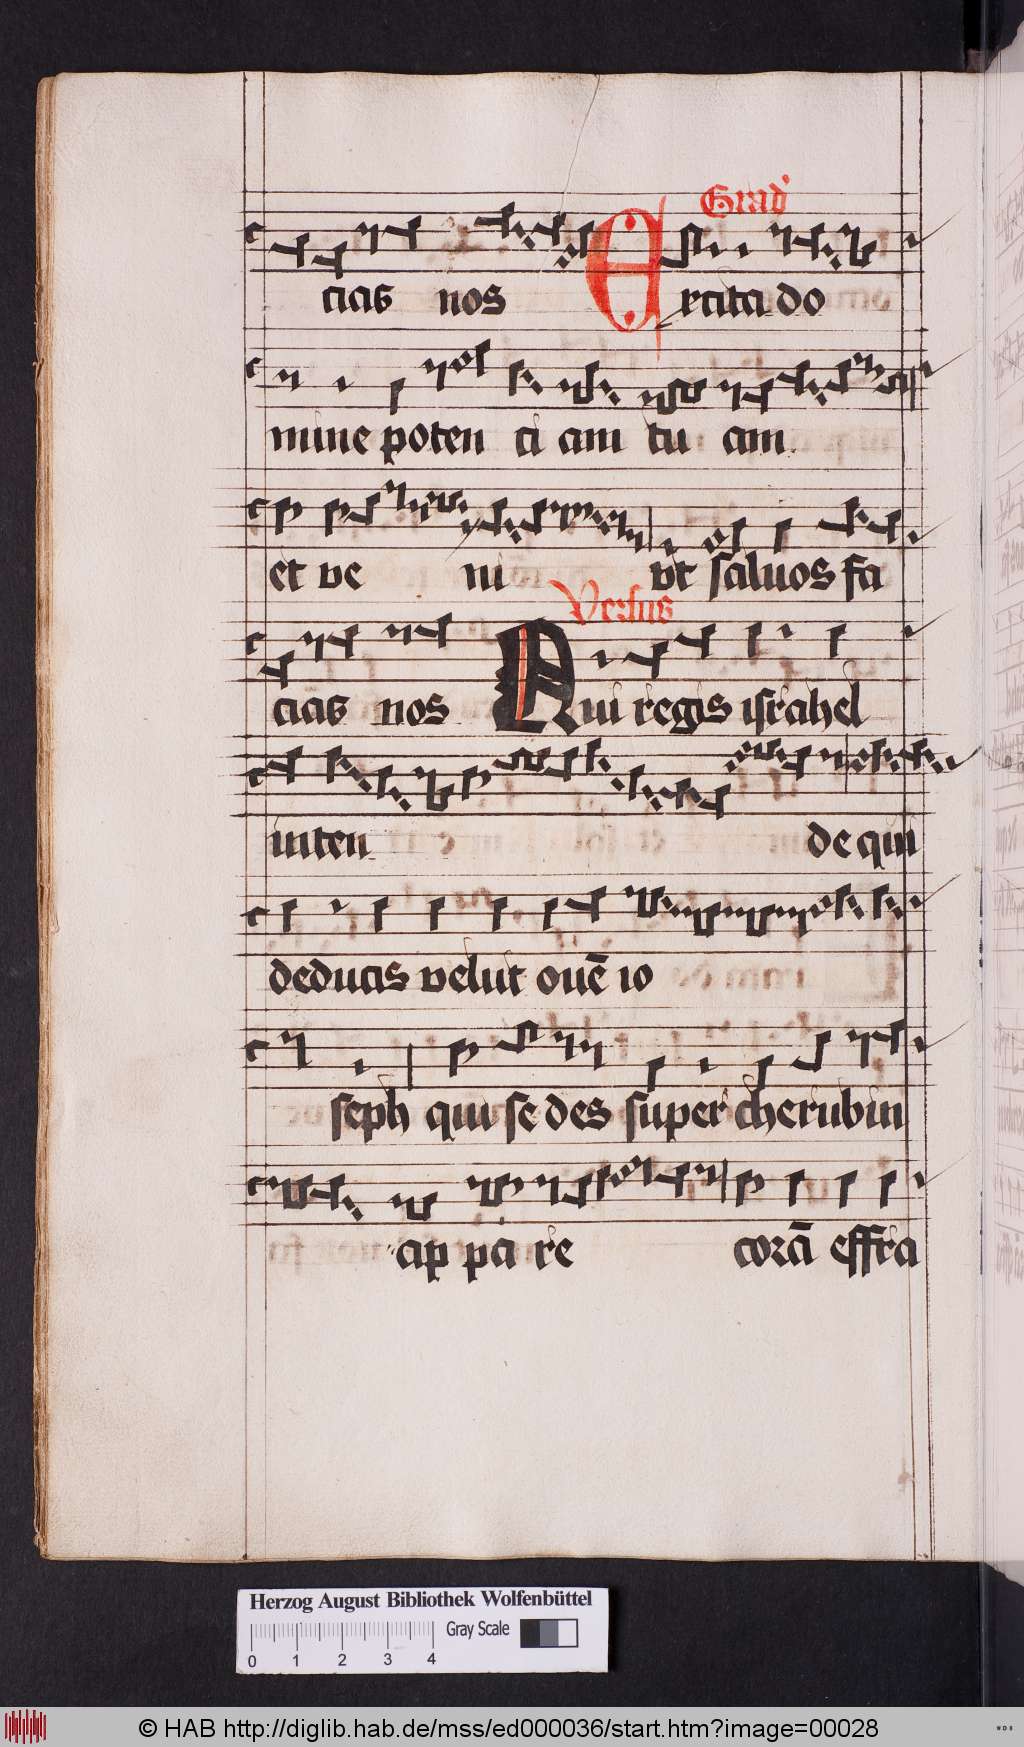 Grad'
cias nos Excita do
mine poten ci am tu am
et ve ni ut saluos fa
Versus
cias nos Qui regis israhel
inten de qui
deducis velut ouē io
seph qui se des super cherubin
ap pa re corā effra
Herzog August Bibliothek Wolfenbüttel
Gray Scale
0 1 2 3 4
© HAB http://diglib.hab.de/mss/ed000036/start.htm?image=00028